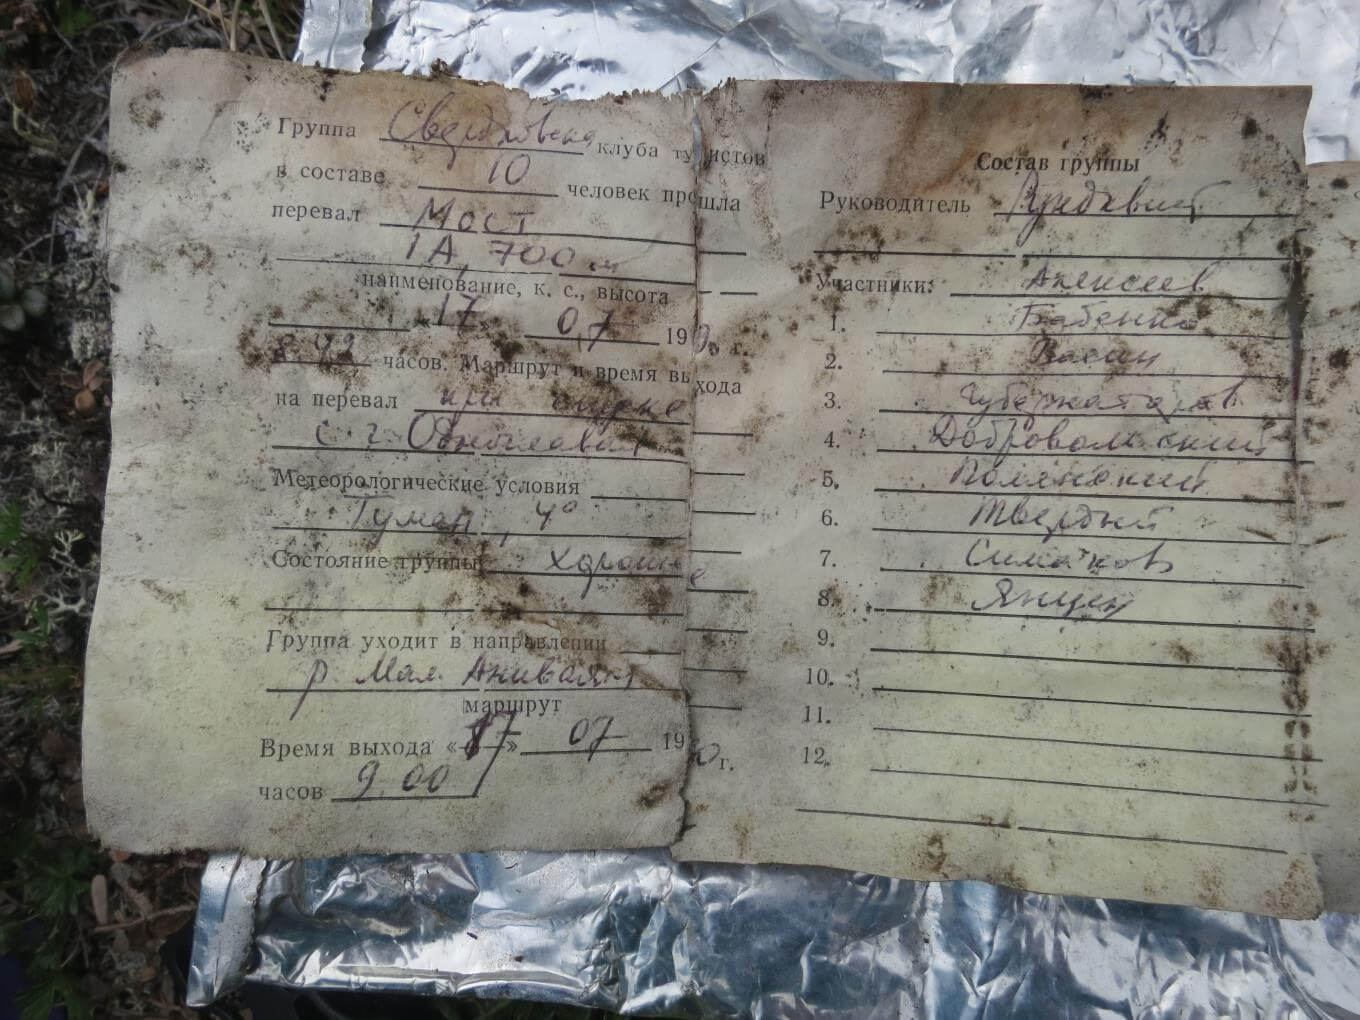 Группа Свердловск. клуба туристов
в составе 10 человек прошла
перевал Мост
1А, 700 м
наименование, к. с., высота
«17» 07 19 г.
8 42 часов. Маршрут и время выхода
на перевал при спуске
с г.
Метеорологические условия
Туман, 4°
Состояние группы хорошее
Группа уходит в направлении
р. Мал.
маршрут
Время выхода «17» 07 19 г.
часов 9.00
Состав группы
Руководитель
Участники: Алексеев
1. Бабенко
2. Васин
3. Губернаторов
4. Добровольский
5. Полянский
6. Твердый
7. Симаков
8. Янцен
9.
10.
11.
12.